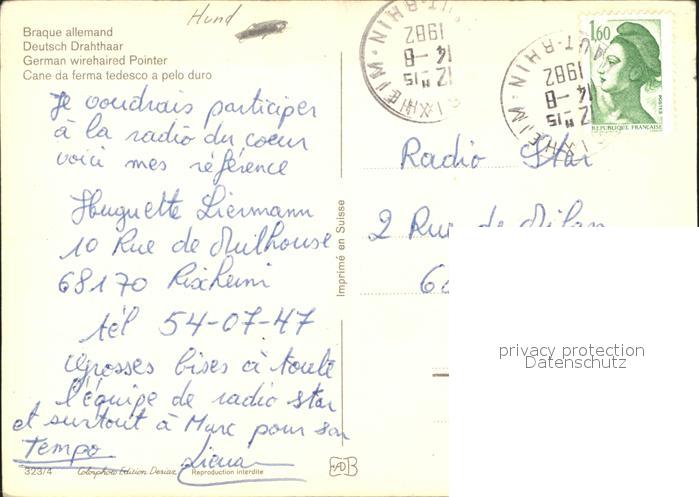 Hund
Braque allemand
Deutsch Drahthaar
German wirehaired Pointer
Cane da ferma tedesco a pelo duro
Je voudrais participer
à la radio du coeur
voici mes référence
Huguette Liermann
10 Rue de Mulhouse
68170 Rixheim
tél 54-07-47
Grosses bises à toute
l'équipe de radio star
et surtout à Marc pour son
Tempo.
323/4 Colorphoto Edition Deriaz Reproduction interdite
Imprimé en Suisse
RIXHEIM
HAUT-RHIN
12 H 15
14-8
1982
RIXHEIM
HAUT-RHIN
12 H 15
14-8
1982
1,60
POSTES
REPUBLIQUE FRANÇAISE
Radio Star
2 Rue de Milan
privacy protection
Datenschutz